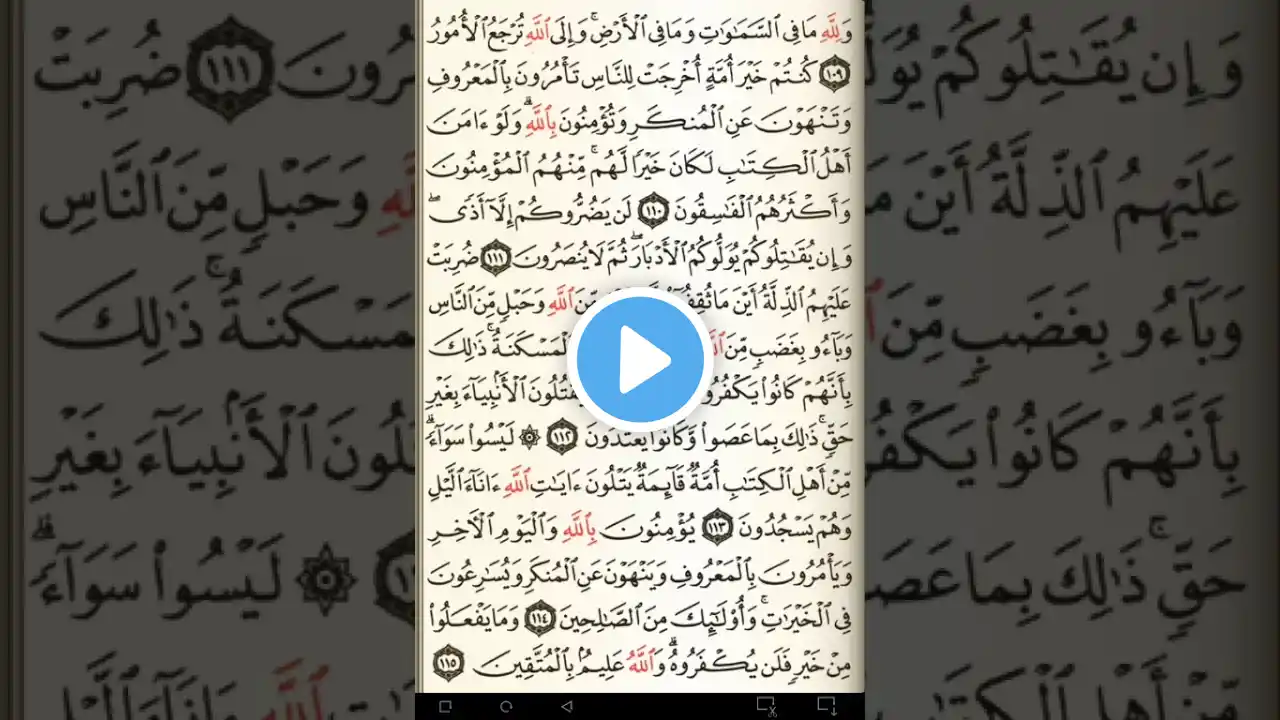 وَلِلَّهِ مَا فِي ٱلسَّمَٰوَٰتِ وَمَا فِي ٱلْأَرْضِ ۚ وَإِلَى ٱللَّهِ تُرْجَعُ ٱلْأُمُورُ
١٠٩ كُنتُمْ خَيْرَ أُمَّةٍ أُخْرِجَتْ لِلنَّاسِ تَأْمُرُونَ بِٱلْمَعْرُوفِ
وَتَنْهَوْنَ عَنِ ٱلْمُنكَرِ وَتُؤْمِنُونَ بِٱللَّهِ ۗ وَلَوْ ءَامَنَ
أَهْلُ ٱلْكِتَٰبِ لَكَانَ خَيْرًا لَّهُم ۚ مِّنْهُمُ ٱلْمُؤْمِنُونَ
وَأَكْثَرُهُمُ ٱلْفَٰسِقُونَ ١١٠ لَن يَضُرُّوكُمْ إِلَّآ أَذًى ۖ
وَإِن يُقَٰتِلُوكُمْ يُوَلُّوكُمُ ٱلْأَدْبَارَ ۖ ثُمَّ لَا يُنصَرُونَ ١١١ ضُرِبَتْ
عَلَيْهِمُ ٱلذِّلَّةُ أَيْنَ مَا ثُقِفُوٓا۟ مِّنَ ٱللَّهِ وَحَبْلٍ مِّنَ ٱلنَّاسِ
وَبَآءُو بِغَضَبٍ مِّنَ ٱلْمَسْكَنَةُ ۚ ذَٰلِكَ
بِأَنَّهُمْ كَانُوا۟ يَكْفُرُونَ وَيَقْتُلُونَ ٱلْأَنۢبِيَآءَ بِغَيْرِ
حَقٍّ ۚ ذَٰلِكَ بِمَا عَصَوا۟ وَّكَانُوا۟ يَعْتَدُونَ ١١٢ ۞ لَيْسُوا۟ سَوَآءً ۗ
مِّنْ أَهْلِ ٱلْكِتَٰبِ أُمَّةٌ قَآئِمَةٌ يَتْلُونَ ءَايَٰتِ ٱللَّهِ ءَانَآءَ ٱلَّيْلِ
وَهُمْ يَسْجُدُونَ ١١٣ يُؤْمِنُونَ بِٱللَّهِ وَٱلْيَوْمِ ٱلْءَاخِرِ
وَيَأْمُرُونَ بِٱلْمَعْرُوفِ وَيَنْهَوْنَ عَنِ ٱلْمُنكَرِ وَيُسَٰرِعُونَ
فِي ٱلْخَيْرَٰتِ ۚ وَأُو۟لَٰٓئِكَ مِنَ ٱلصَّٰلِحِينَ ١١٤ وَمَا يَفْعَلُوا۟
مِنْ خَيْرٍ فَلَن يُكْفَرُوهُ ۗ وَٱللَّهُ عَلِيمٌۢ بِٱلْمُتَّقِينَ ١١٥